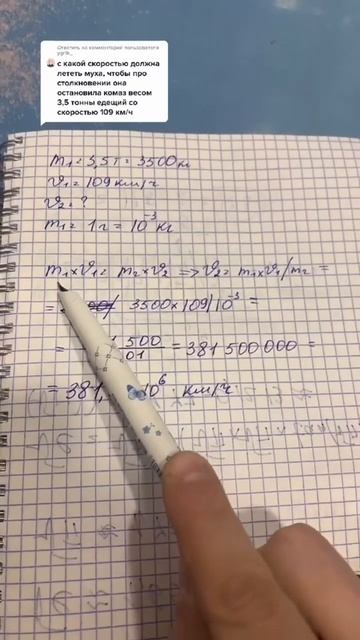 Ответить на комментарий пользователя
с какой скоростью должна
лететь муха, чтобы про
столкновении она
остановила комаз весом
3,5 тонны едещий со
скоростью 109 км/ч
m₁ = 3,5 т = 3500 кг
υ₁ = 109 км/ч
υ₂ = ?
m₁ = 1 г = 10⁻³ кг
m₁×υ₁ = m₂×υ₂ => υ₂ = m₁×υ₁/m₂ =
= 3500×109/10⁻³ =
= 500 / 01 = 381 500 000 =
= 381, 10⁶ км/ч